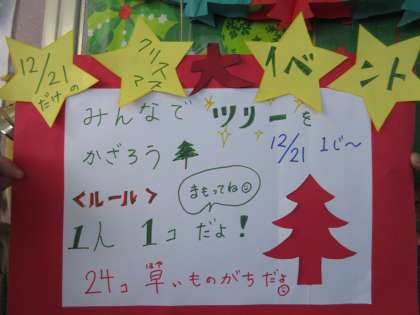 12/21だけの クリスマス 大イベント
みんなで ツリーを
かざろう 12/21 1じ〜
<ルール> まもってね☺
1人 1コ だよ!
24コ 早いものがちだよ☺
はや